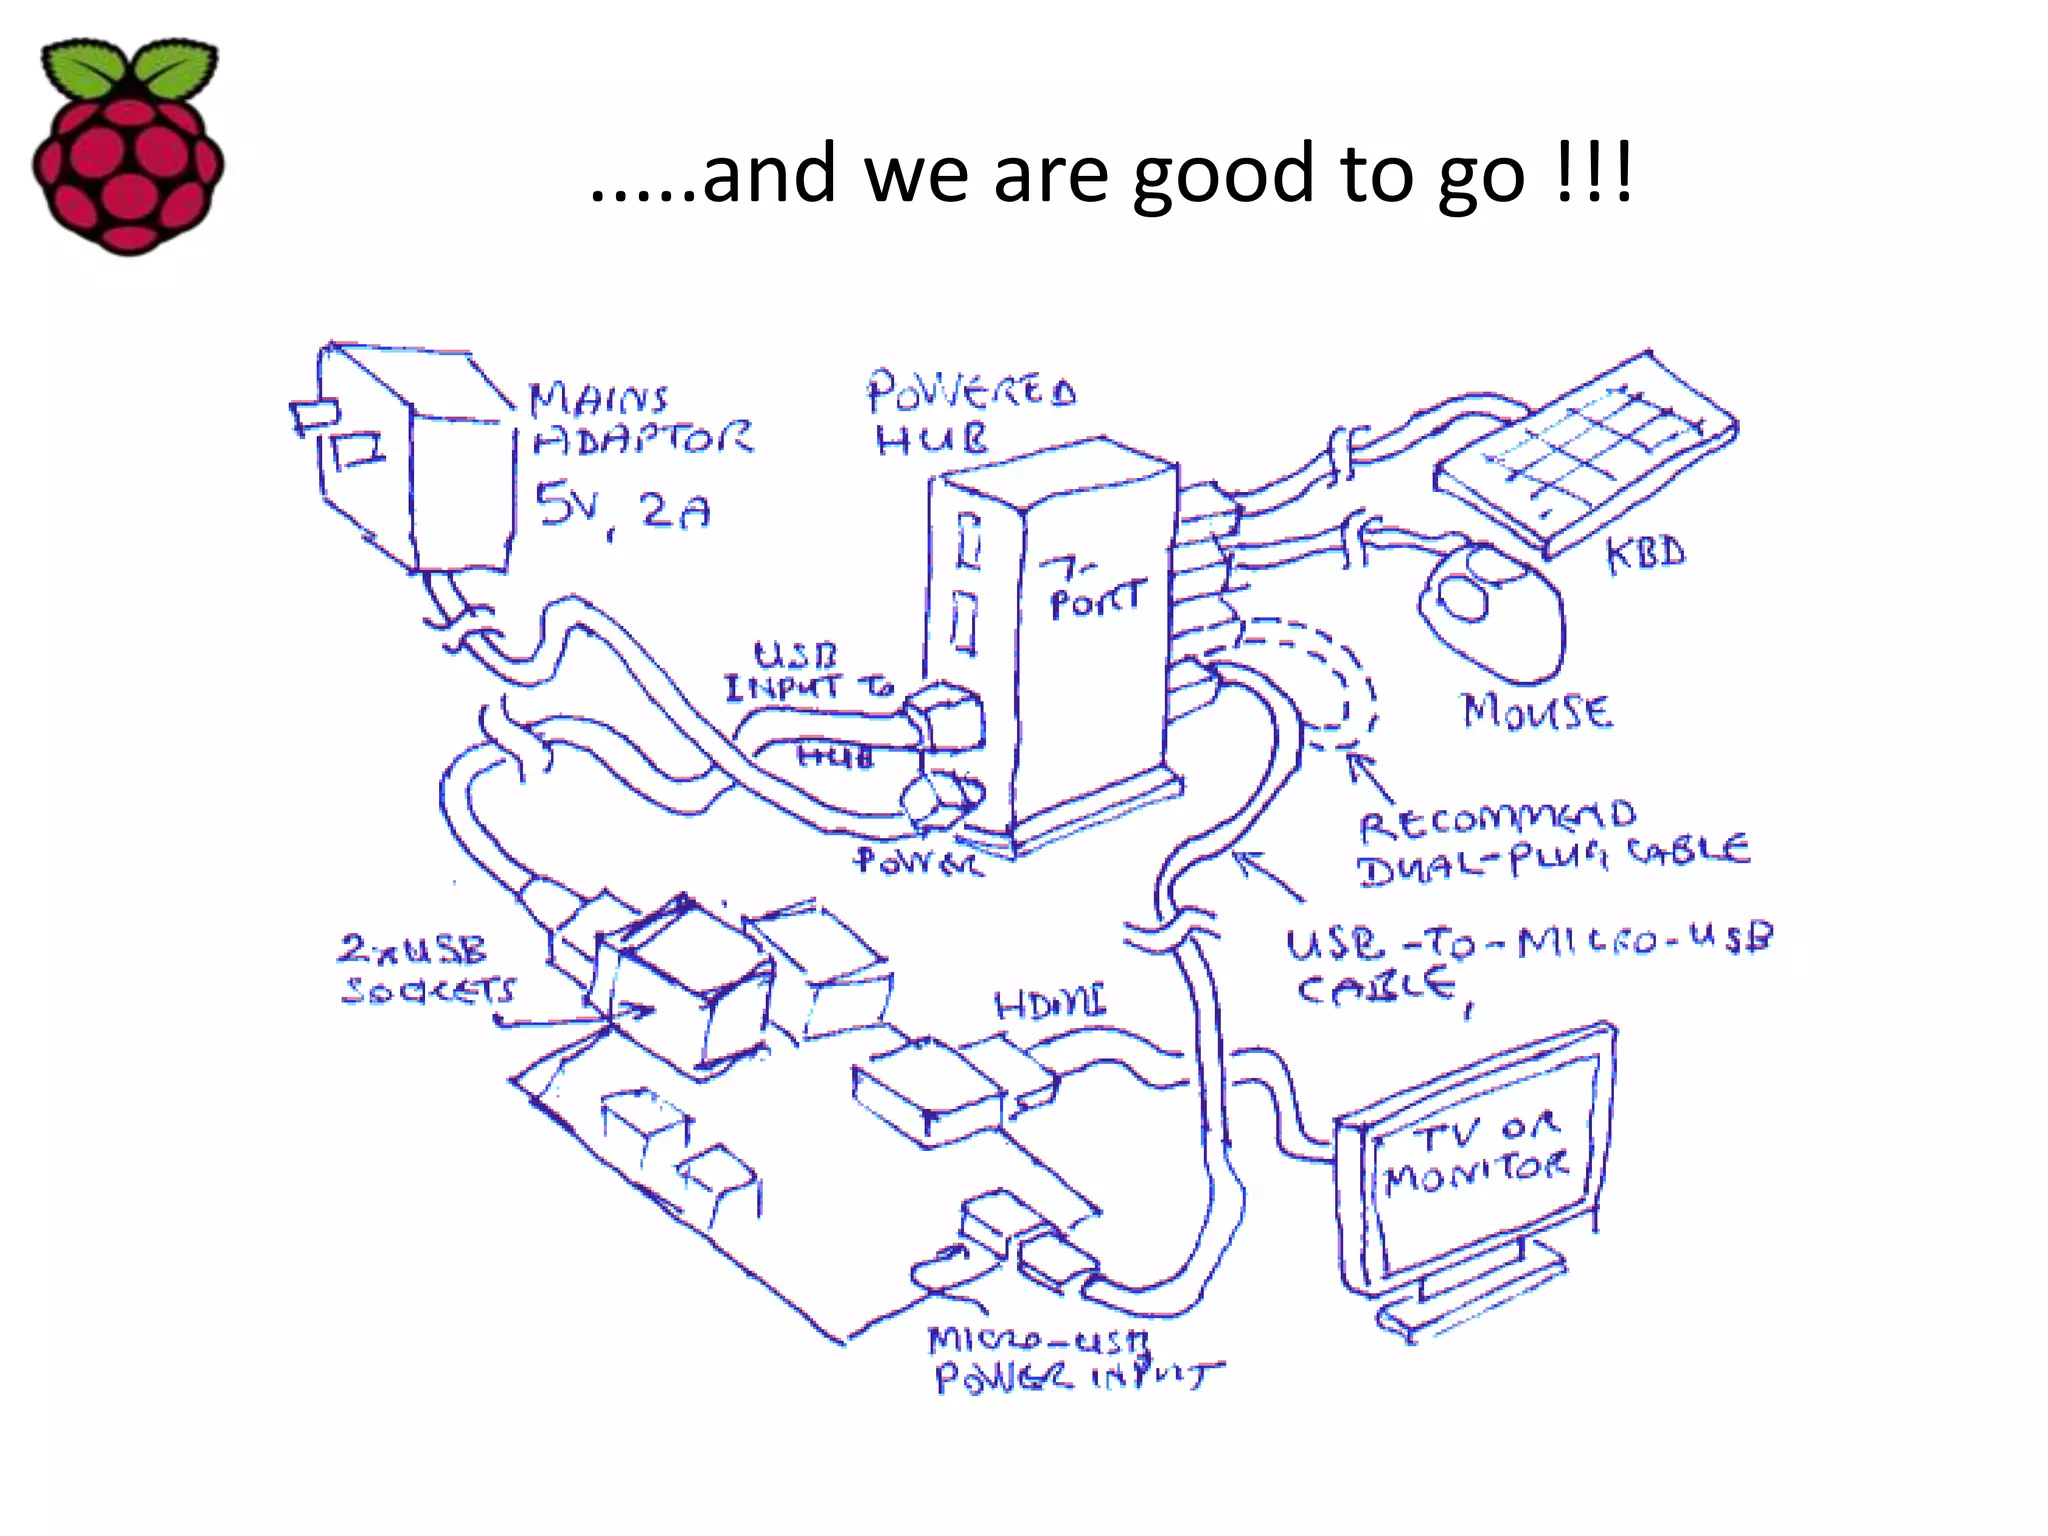 .....and we are good to go !!!
MAINS
ADAPTOR
5V, 2A
POWERED
HUB
7-
PORT
KBD
MOUSE
USB
INPUT TO
HUB
POWER
RECOMMEND
DUAL-PLUG CABLE
USB-TO-MICRO-USB
CABLE,
2xUSB
SOCKETS
HDMI
TV OR
MONITOR
MICRO-USB
POWER INPUT